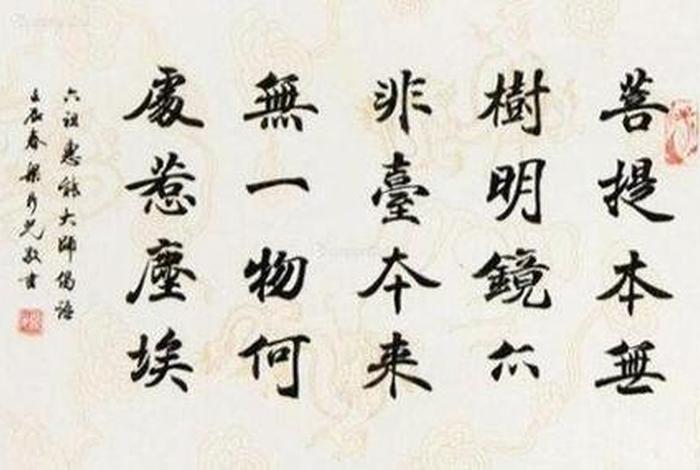 菩提本無
樹明鏡亦
非臺夲来
無一物何
處惹塵埃
六祖惠能大師偈語
壬辰春梁光敬書